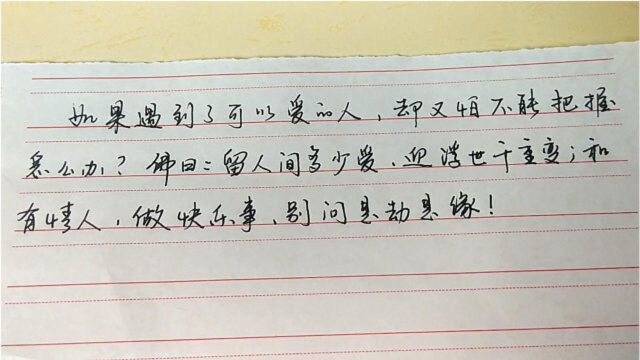 如果遇到了可以爱的人，却又怕不能把握
怎么办？佛曰：留人间多少爱，迎浮世千重变；和
有情人，做快乐事，别问是劫是缘！